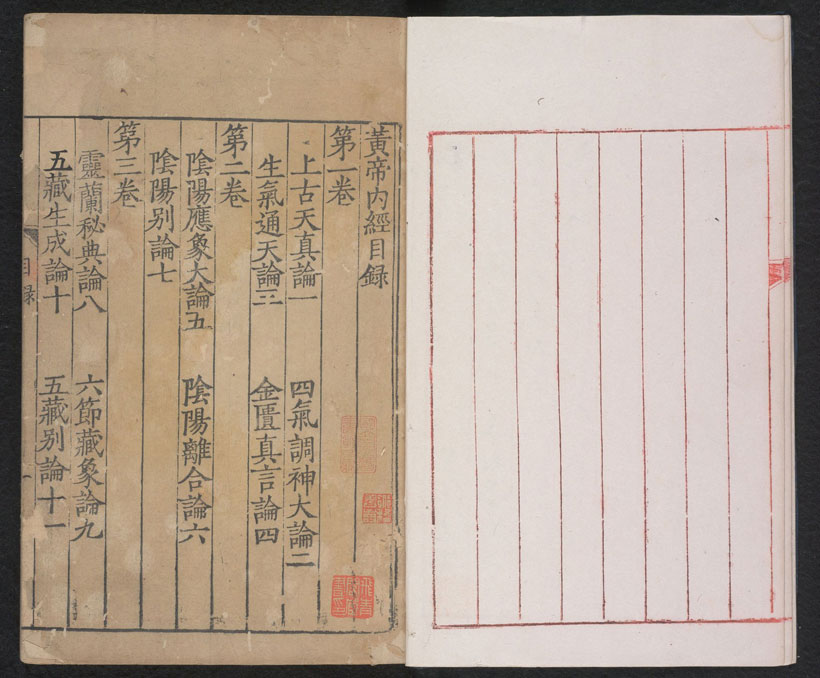 黃帝内經目録
第一卷
上古天真論一 四氣調神大論二
生氣通天論三 金匱真言論四
第二卷
陰陽應象大論五 陰陽離合論六
陰陽别論七
第三卷
靈蘭秘典論八 六節藏象論九
五藏生成論十 五藏别論十一
目録
一